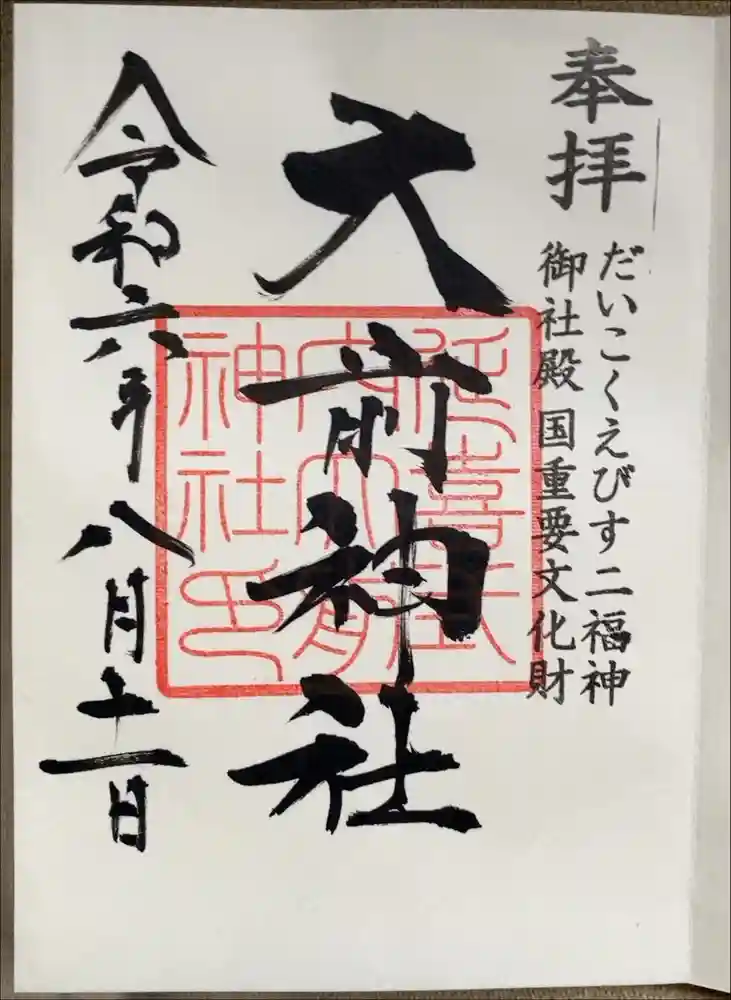 奉拝
だいこくえびす二福神
御社殿 国重要文化財
大前神社
令和六年八月十一日
延喜式
内大前
神社印